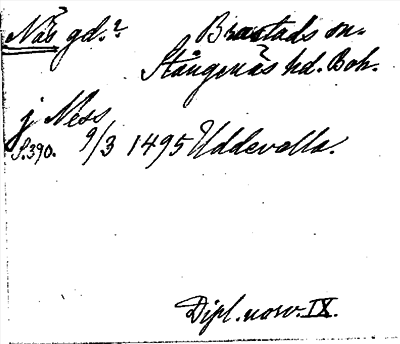 Näs gd.? Brastads sn.
Stångenäs hd. Boh.
j Ness
S.390. 9/3 1495 Uddevalla.
Dipl. norv. IX.